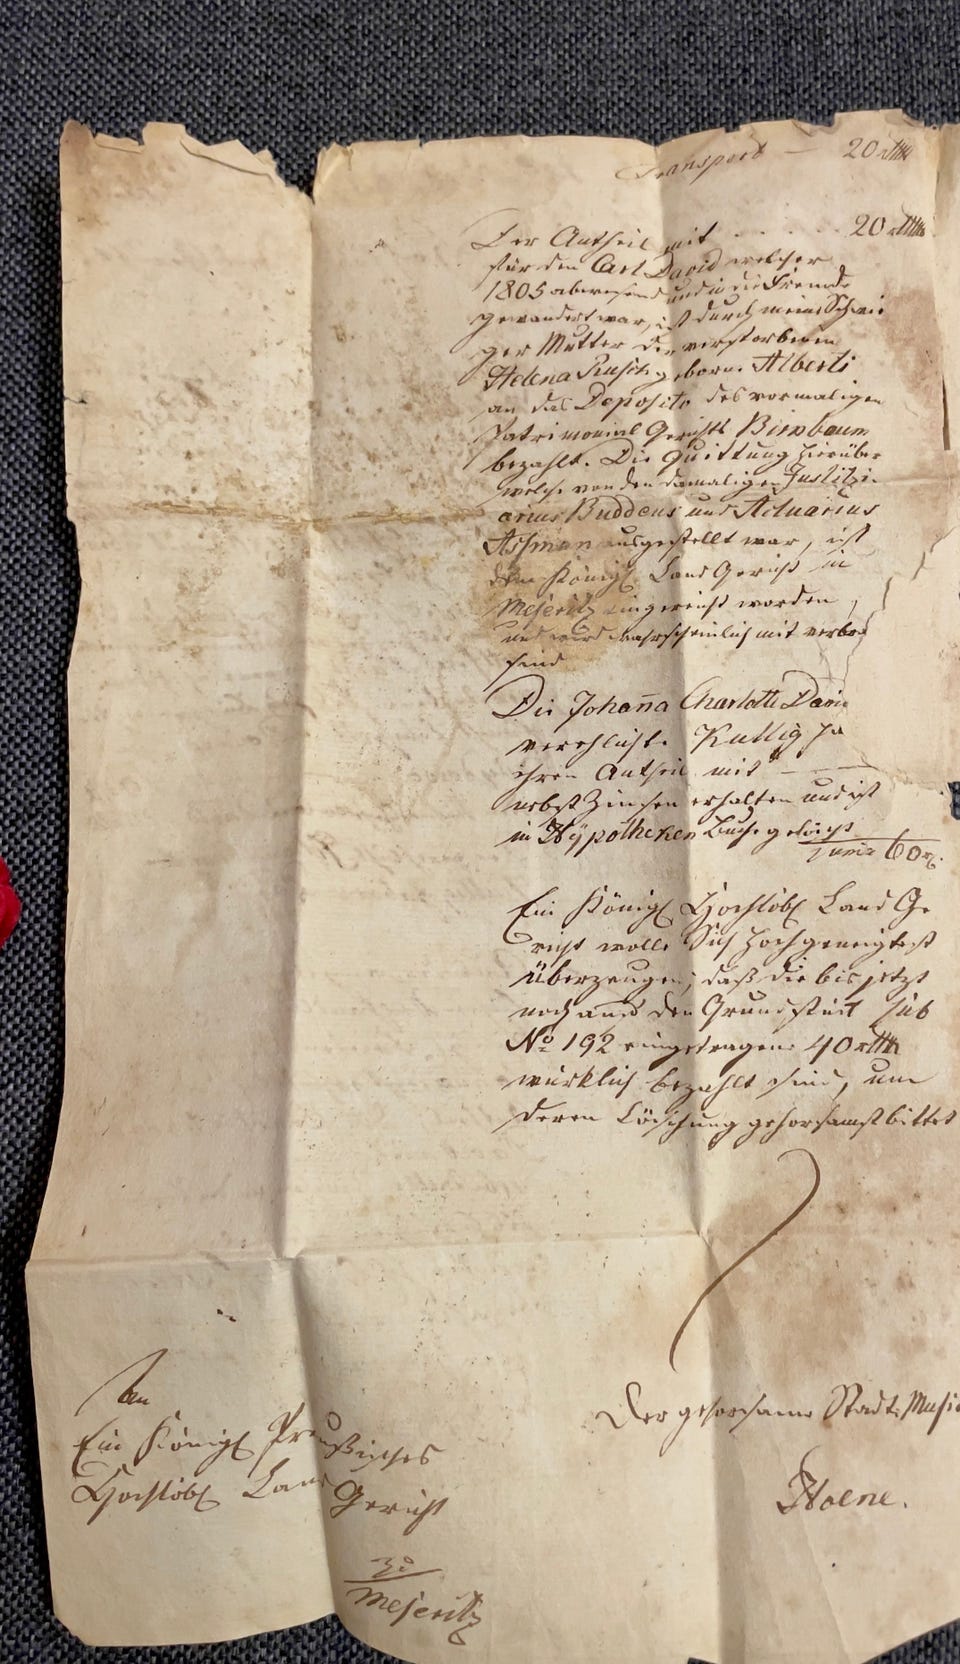 Transport — 20 rthlr
Der Antheil mit . . . . . 20 rthlr
für den Carl David welcher
1805 abwesend und in die Fremde
gewandert war, ist durch meine Schwie
ger Mutter die verstorbenen
Helena Rusch geborne Alberti
an das Deposito des vormaligen
Patrimonial Gerichts Birnbaum
bezahlt. Die Quittung hierüber
welche von den damaligen Justitzi
arius Buddeus und Actuarius
Assman ausgestellt war, ist
dem Königl Land Gericht in
Meseritz eingereicht worden,
und wird wahrscheinlich mit
sind
Die Johanna Charlotte David
verehlichte Kuttig ha
ihren Antheil mit — —
nebst Zinsen erhalten und ist
in Hypotheken Buche gelöscht
Summa 60 r.
Ein Königl Hochlöbl Land Ge
richt wolle Sich hochgeneigtest
überzeugen, daß die bis jetzt
noch auf den Grundstück sub
No 192 eingetragene 40 rthlr
würklich bezahlt sind, um
deren Löschung gehorsamst bittet
Der gehorsame Stadt Musi
Hoene.
An
Ein Königl Preußisches
Hochlöbl Land Gericht
zu
Meseritz